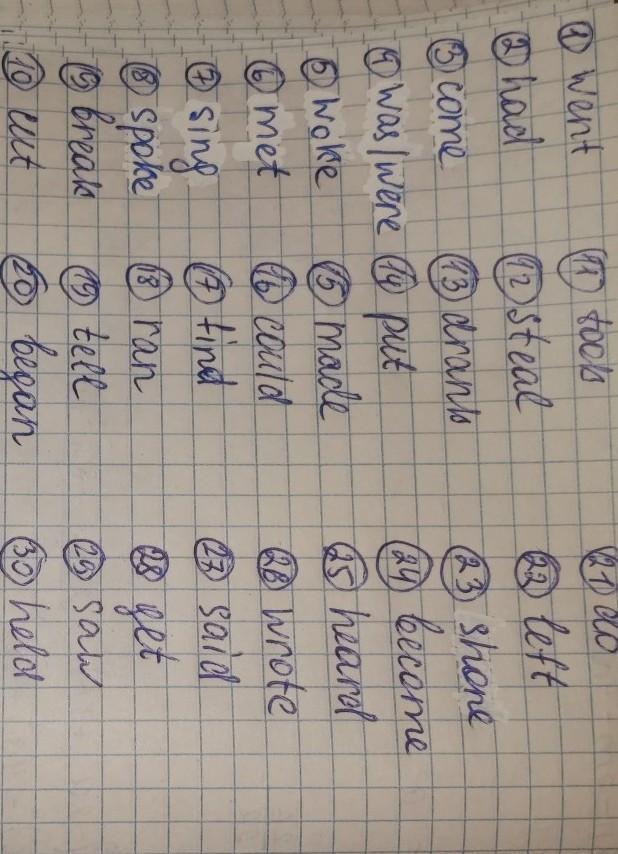 1 went
2 had
3 come
4 was/were
5 woke
6 met
7 sing
8 spoke
9 break
10 cut
11 took
12 steal
13 drank
14 put
15 made
16 could
17 find
18 ran
19 tell
20 began
21 do
22 left
23 shone
24 become
25 heard
26 wrote
27 said
28 get
29 saw
30 held